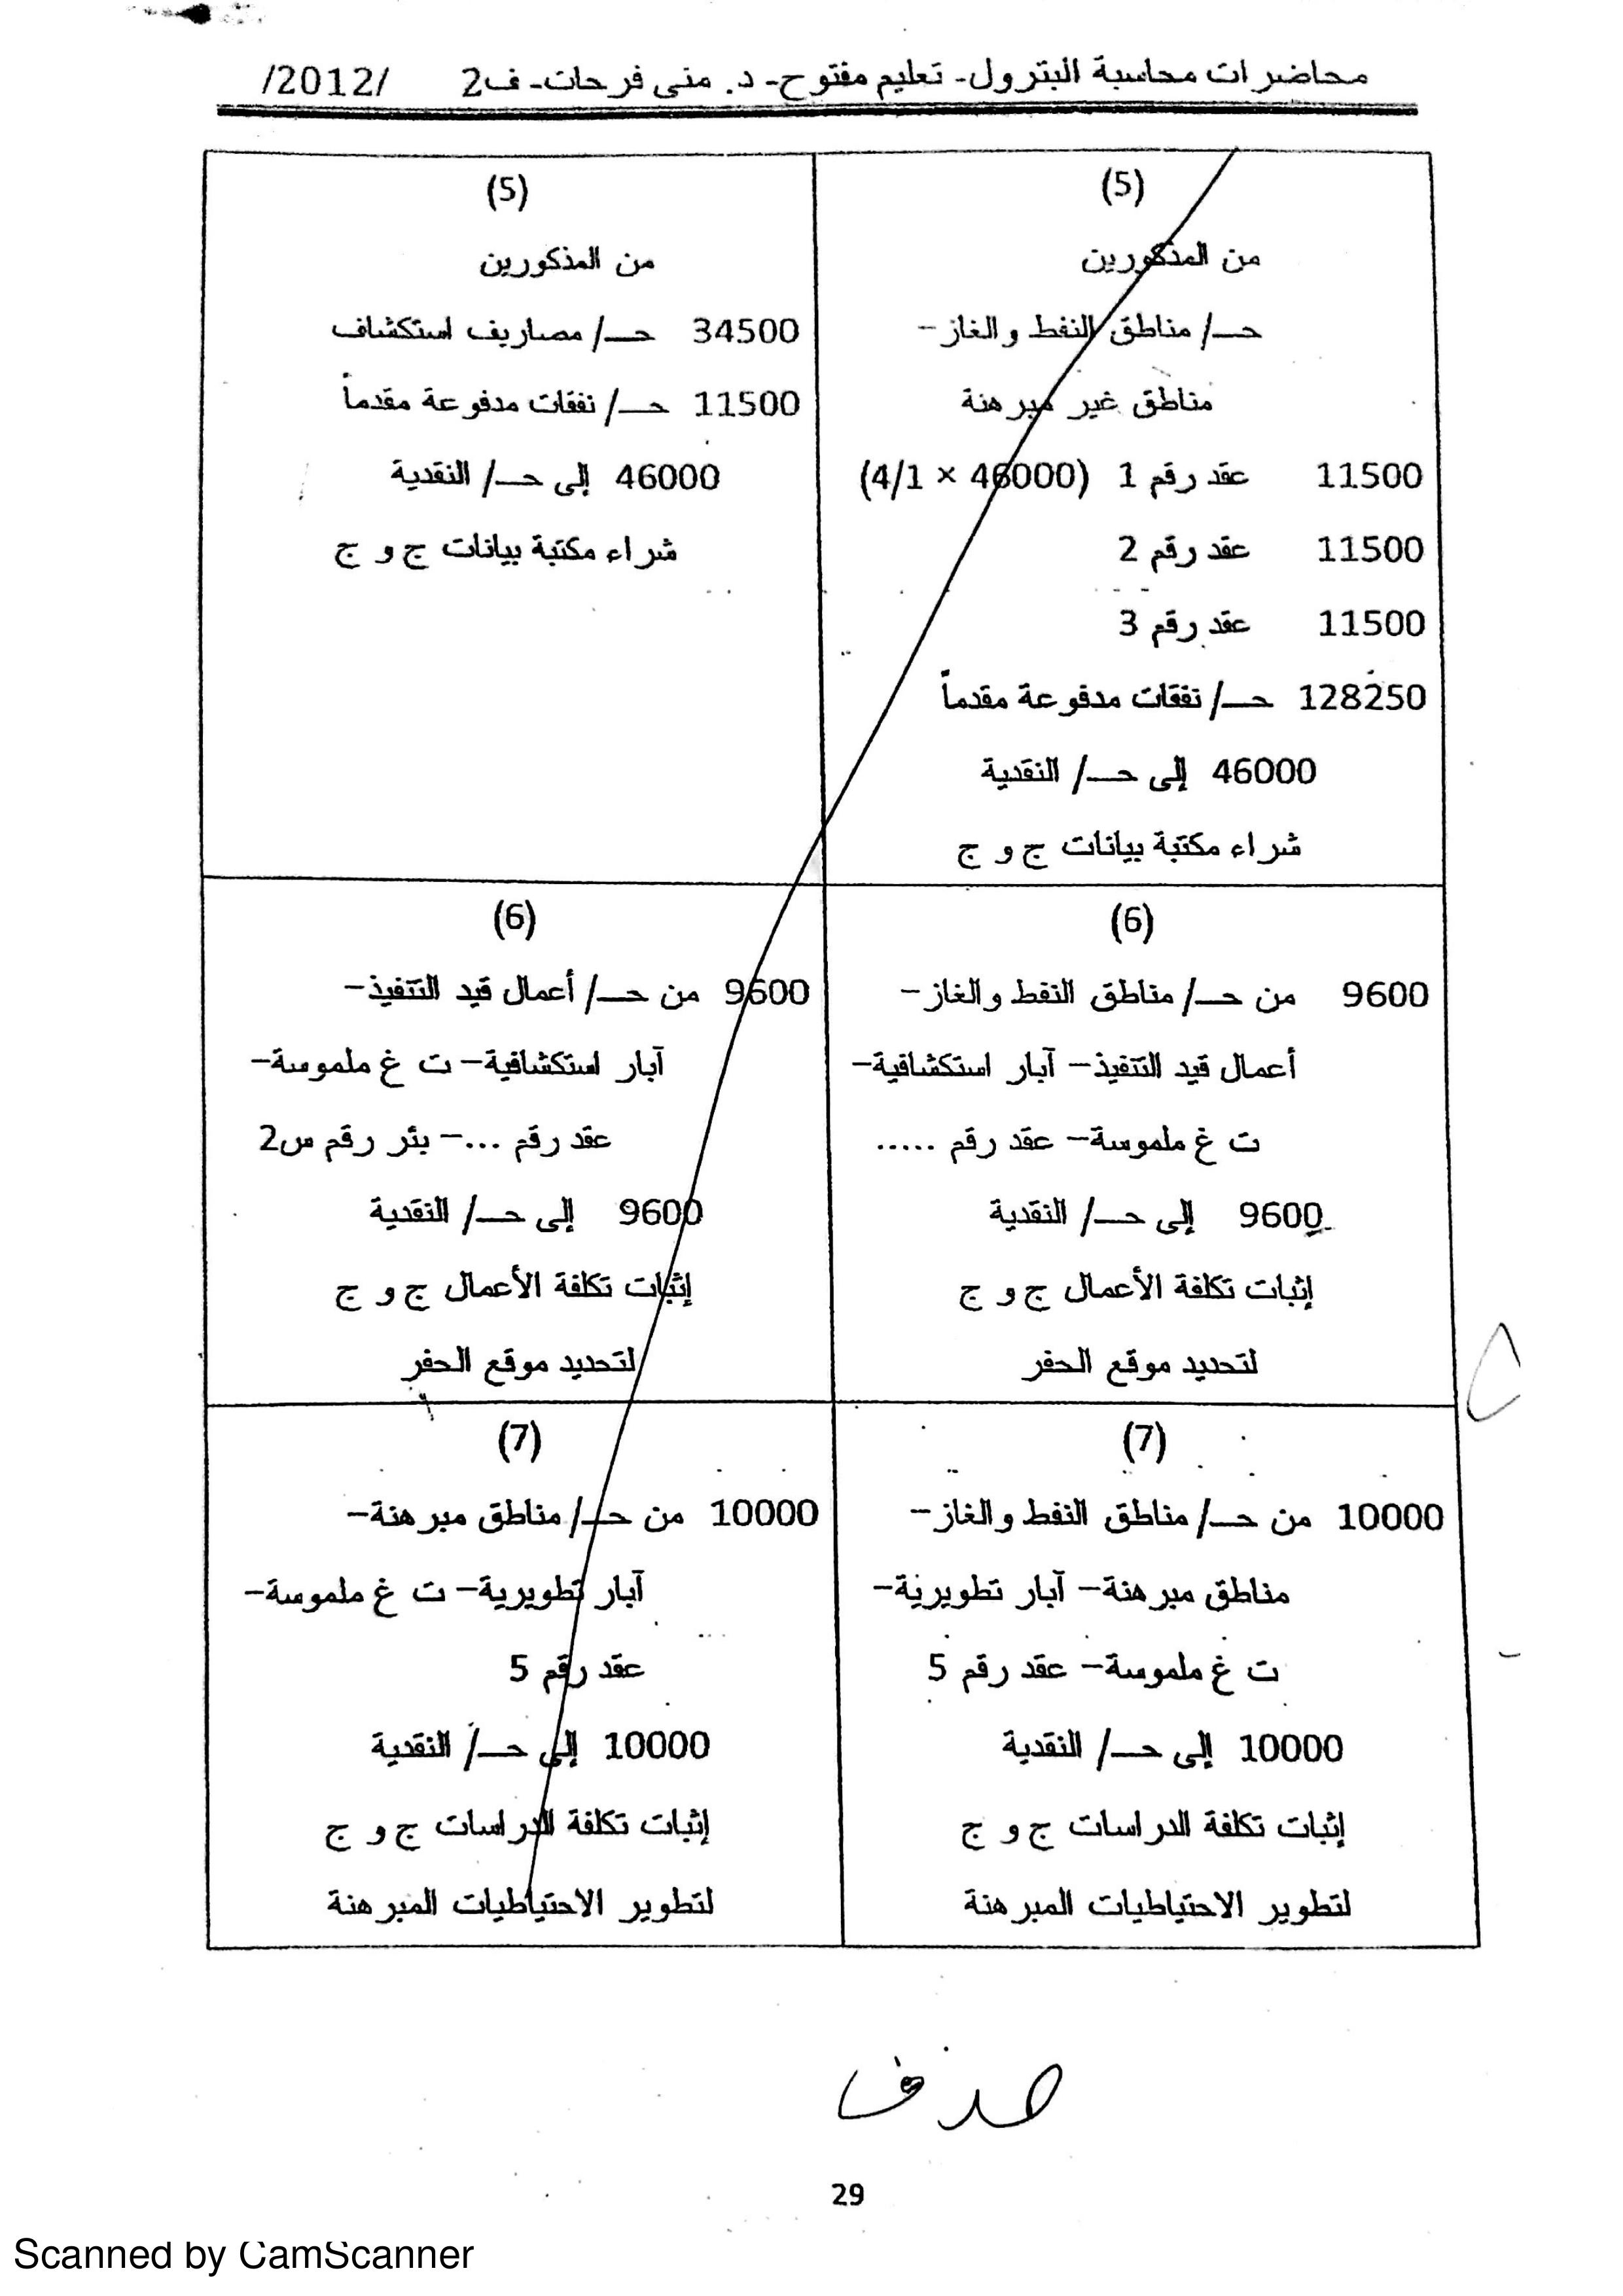 محاضرات محاسبة البترول- تعليم مفتوح- د. منى فرحات- ف2 /2012/
(5)
من المذكورين
حـ/ مناطق النفط والغاز-
مناطق غير مبرهنة
11500 عقد رقم 1 (46000 × 4/1)
11500 عقد رقم 2
11500 عقد رقم 3
128250 حـ/ نفقات مدفوعة مقدماً
46000 إلى حـ/ النقدية
شراء مكتبة بيانات ج و ج
(5)
من المذكورين
34500 حـ/ مصاريف استكشاف
11500 حـ/ نفقات مدفوعة مقدماً
46000 إلى حـ/ النقدية
شراء مكتبة بيانات ج و ج
(6)
9600 من حـ/ مناطق النفط والغاز-
أعمال قيد التنفيذ- آبار استكشافية-
ت غ ملموسة- عقد رقم .....
9600 إلى حـ/ النقدية
إثبات تكلفة الأعمال ج و ج
لتحديد موقع الحفر
(6)
9600 من حـ/ أعمال قيد التنفيذ-
آبار استكشافية- ت غ ملموسة-
عقد رقم ...- بئر رقم س2
9600 إلى حـ/ النقدية
إثبات تكلفة الأعمال ج و ج
لتحديد موقع الحفر
(7)
10000 من حـ/ مناطق النفط والغاز-
مناطق مبرهنة- آبار تطويرية-
ت غ ملموسة- عقد رقم 5
10000 إلى حـ/ النقدية
إثبات تكلفة الدراسات ج و ج
لتطوير الاحتياطيات المبرهنة
(7)
10000 من حـ/ مناطق مبرهنة-
آبار تطويرية- ت غ ملموسة-
عقد رقم 5
10000 إلى حـ/ النقدية
إثبات تكلفة الدراسات ج و ج
لتطوير الاحتياطيات المبرهنة
حذف
29
Scanned by CamScanner